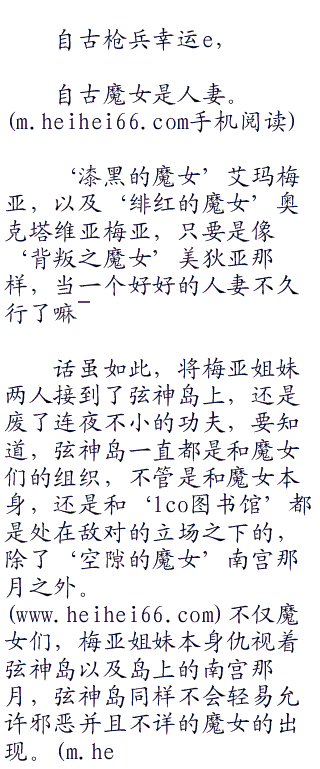 自古枪兵幸运e,
自古魔女是人妻。
(m.heihei66.com手机阅读)
‘漆黑的魔女’艾玛梅
亚，以及‘绯红的魔女’奥
克塔维亚梅亚，只要是像
‘背叛之魔女’美狄亚那
样，当一个好好的人妻不久
行了嘛¯
话虽如此，将梅亚姐妹
两人接到了弦神岛上，还是
废了连夜不小的功夫，要知
道，弦神岛一直都是和魔女
们的组织，不管是和魔女本
身，还是和‘lco图书馆’都
是处在敌对的立场之下的，
除了‘空隙的魔女’南宫那
月之外。
(www.heihei66.com)不仅魔
女们，梅亚姐妹本身仇视着
弦神岛以及岛上的南宫那
月，弦神岛同样不会轻易允
许邪恶并且不详的魔女的出
现。(m.he